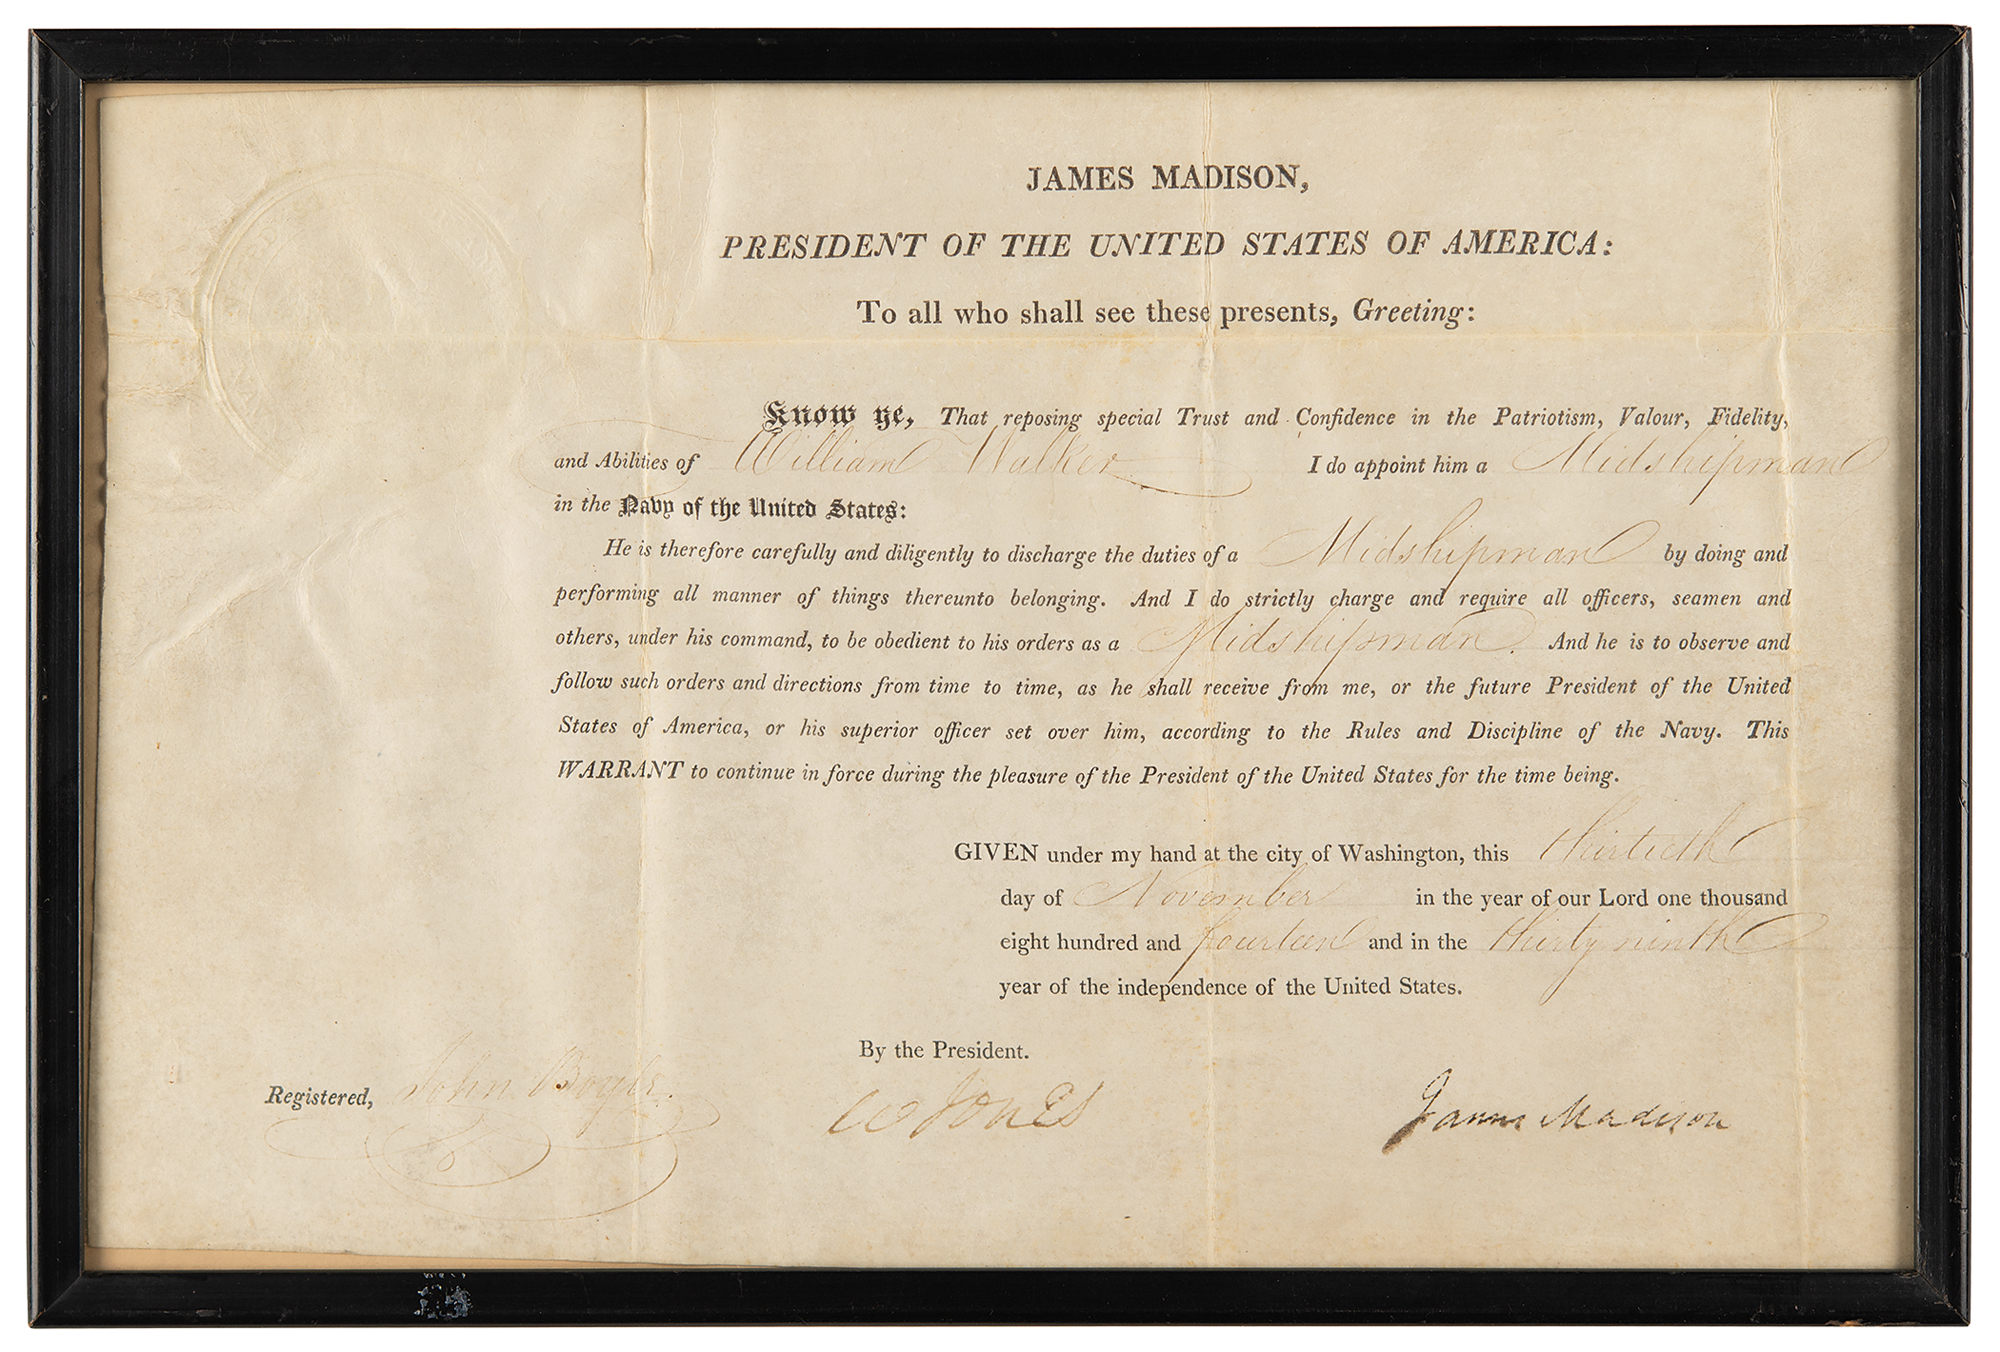 JAMES MADISON,
PRESIDENT OF THE UNITED STATES OF AMERICA:
To all who shall see these presents, Greeting:
Know ye, That reposing special Trust and Confidence in the Patriotism, Valour, Fidelity,
and Abilities of William Walker I do appoint him a Midshipman
in the Navy of the United States:
He is therefore carefully and diligently to discharge the duties of a Midshipman by doing and
performing all manner of things thereunto belonging. And I do strictly charge and require all officers, seamen and
others, under his command, to be obedient to his orders as a Midshipman. And he is to observe and
follow such orders and directions from time to time, as he shall receive from me, or the future President of the United
States of America, or his superior officer set over him, according to the Rules and Discipline of the Navy. This
WARRANT to continue in force during the pleasure of the President of the United States for the time being.
GIVEN under my hand at the city of Washington, this thirtieth
day of November in the year of our Lord one thousand
eight hundred and fourteen and in the thirty ninth
year of the independence of the United States.
By the President.
Registered, John Boyle.
W Jones
James Madison